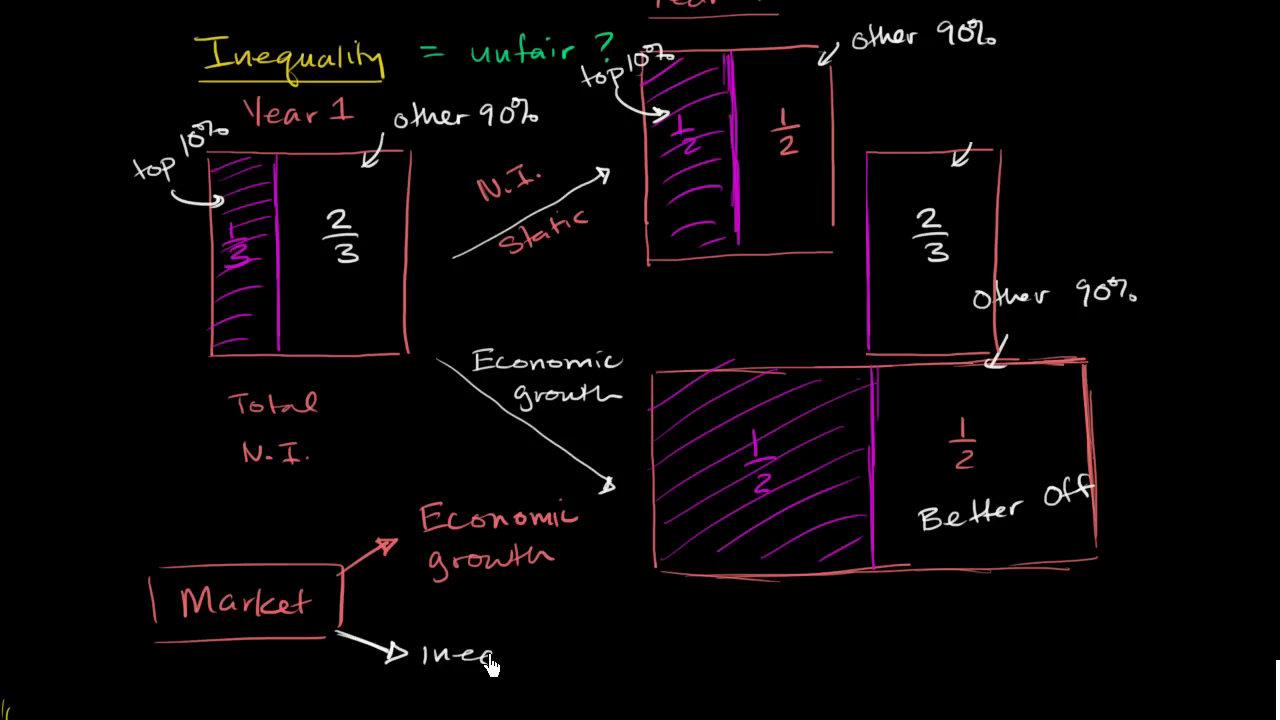 Inequality = unfair ?
Year 1
top 10%
other 90%
1/3
2/3
Total
N.I.
N.I.
Static
top 10%
other 90%
1/2
1/2
2/3
Economic
growth
Other 90%
1/2
1/2
Better Off
Market
Economic
growth
Ineq